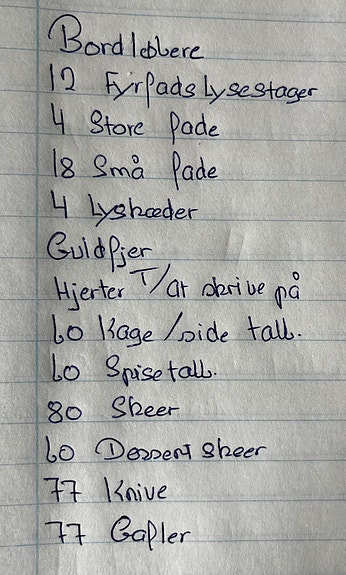 Bordløbere
12 Fyrfads lysestager
4 Store fade
18 Små fade
4 Lyskæder
Guldfjer
Hjerter T/at skrive på
60 Kage/side tall.
60 Spisetall.
80 Skeer
60 Dessert skeer
77 Knive
77 Gafler